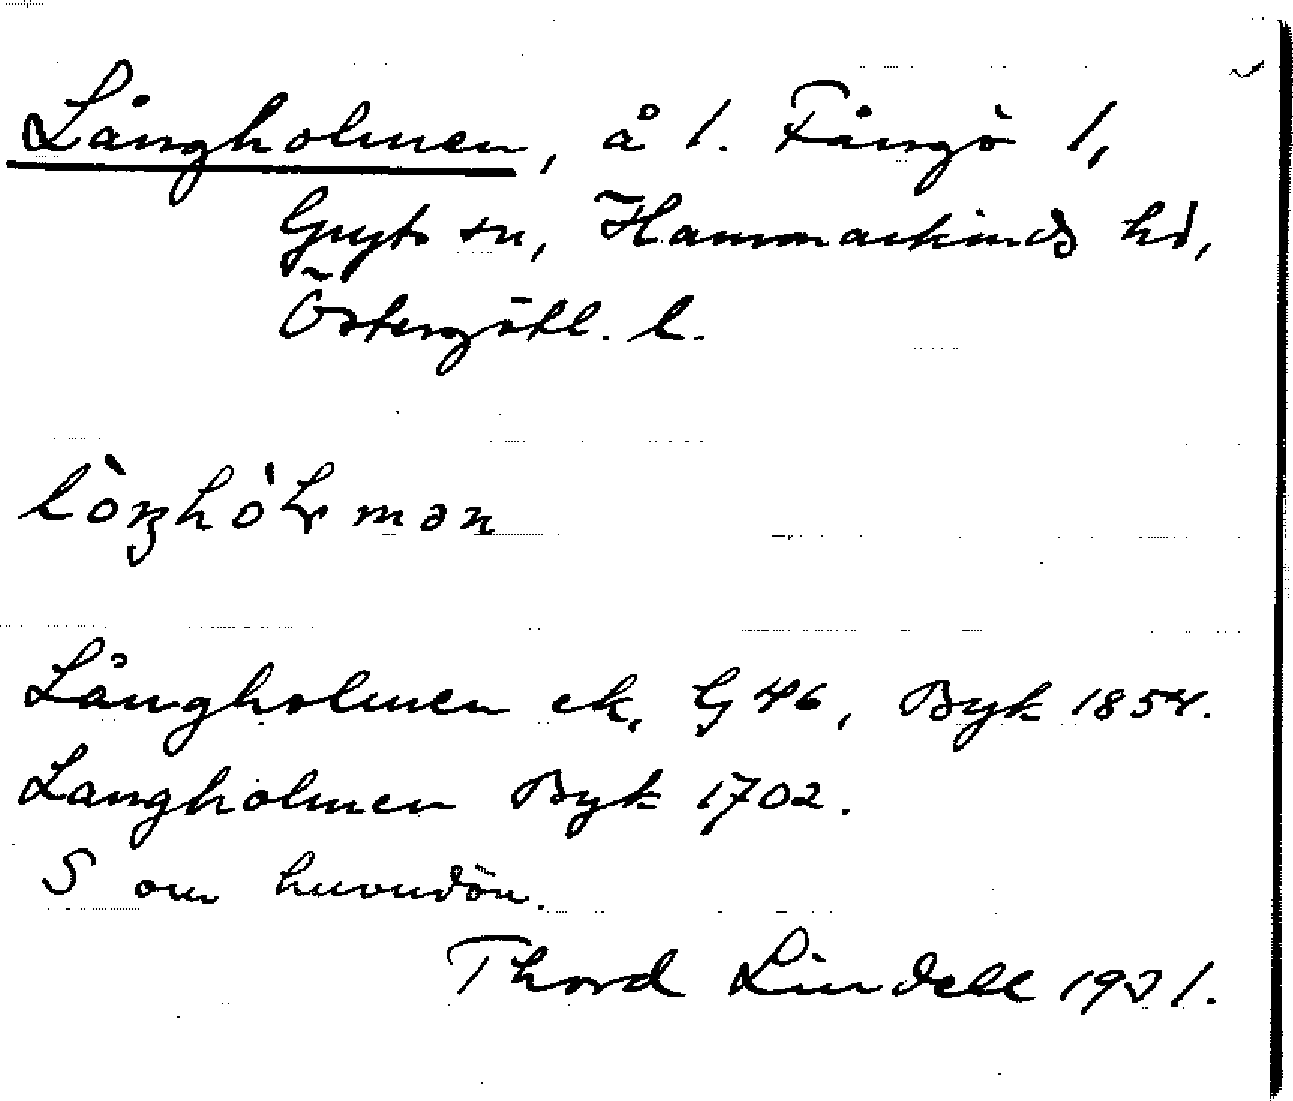 Långholmen, å 1. Fångö 1,
Gryts sn, Hammarkinds hd,
Östergötl. l.
Långholmen ek. G 46, Byk 1854.
Langholmen Byk 1702.
S om huvudön.
Thord Lindell 1931.